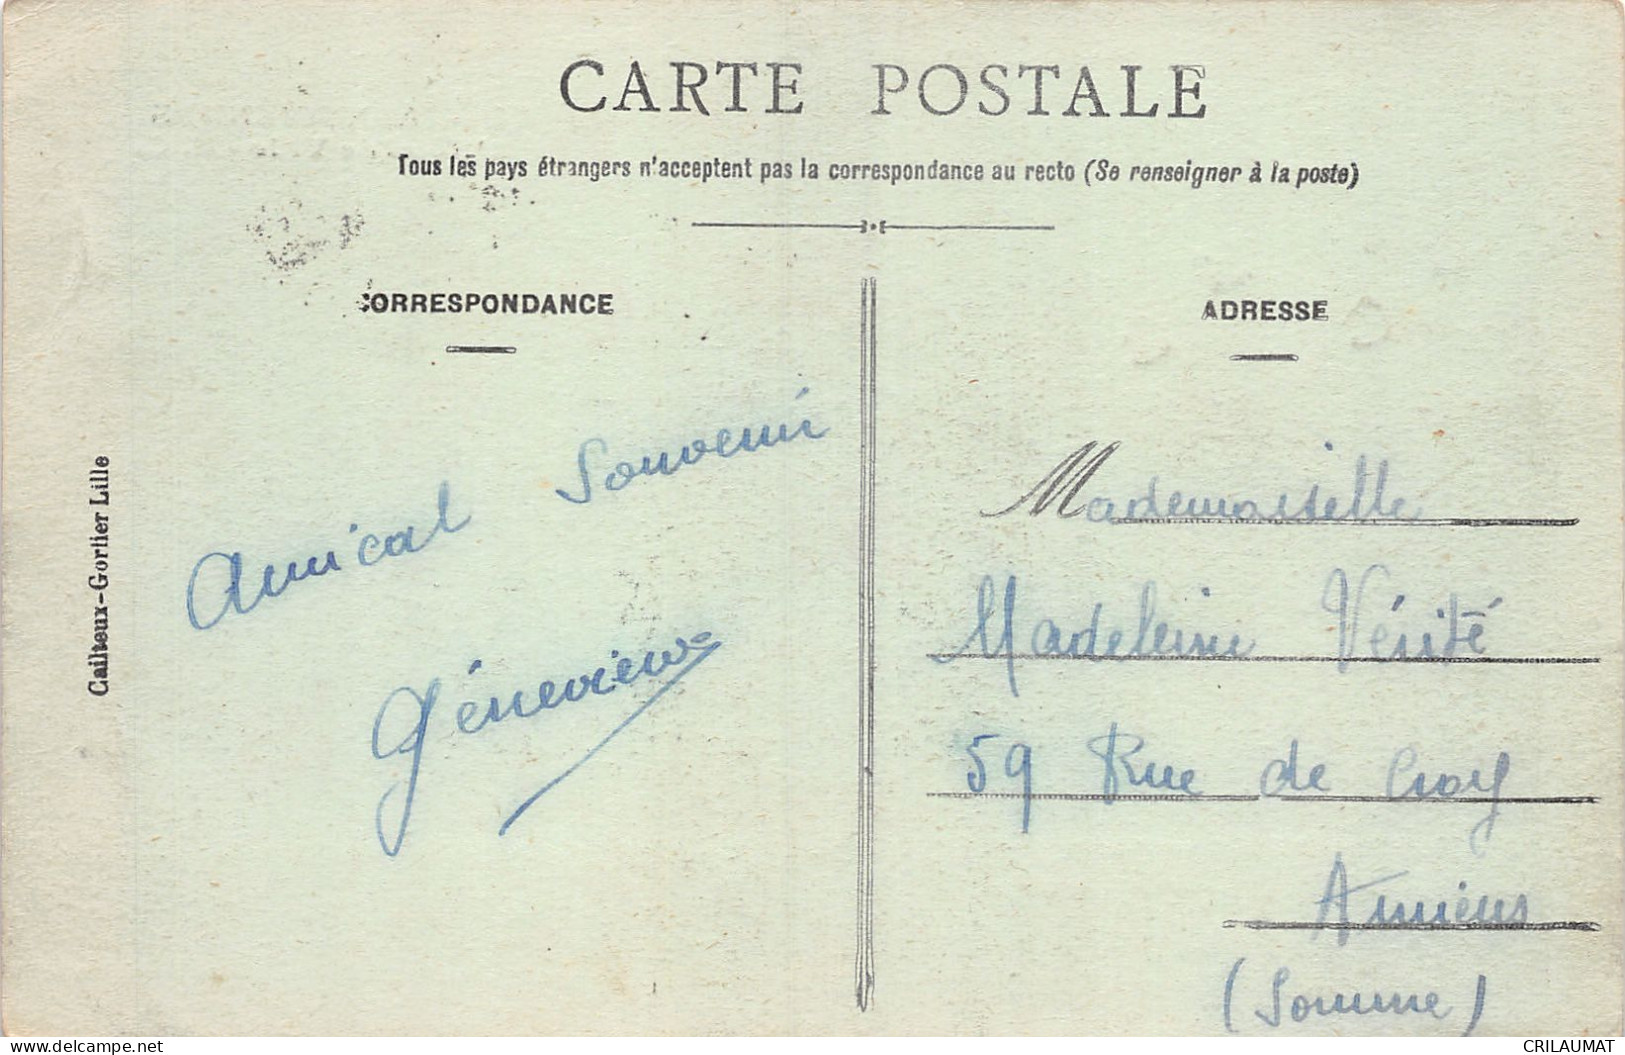 CARTE POSTALE
Tous les pays étrangers n'acceptent pas la correspondance au recto (Se renseigner à la poste)
CORRESPONDANCE
Amical Souvenir
Géneviève
ADRESSE
Mademoiselle
Madeleine Vérité
59 Rue de Croy
Amiens
(Somme)
Cailteux-Gortier Lille
www.delcampe.net
CRILAUMAT